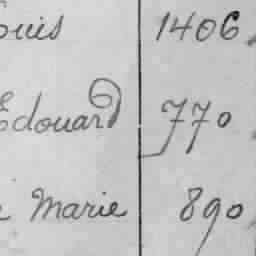 ouis 1406
Edouard 770
e Marie 890